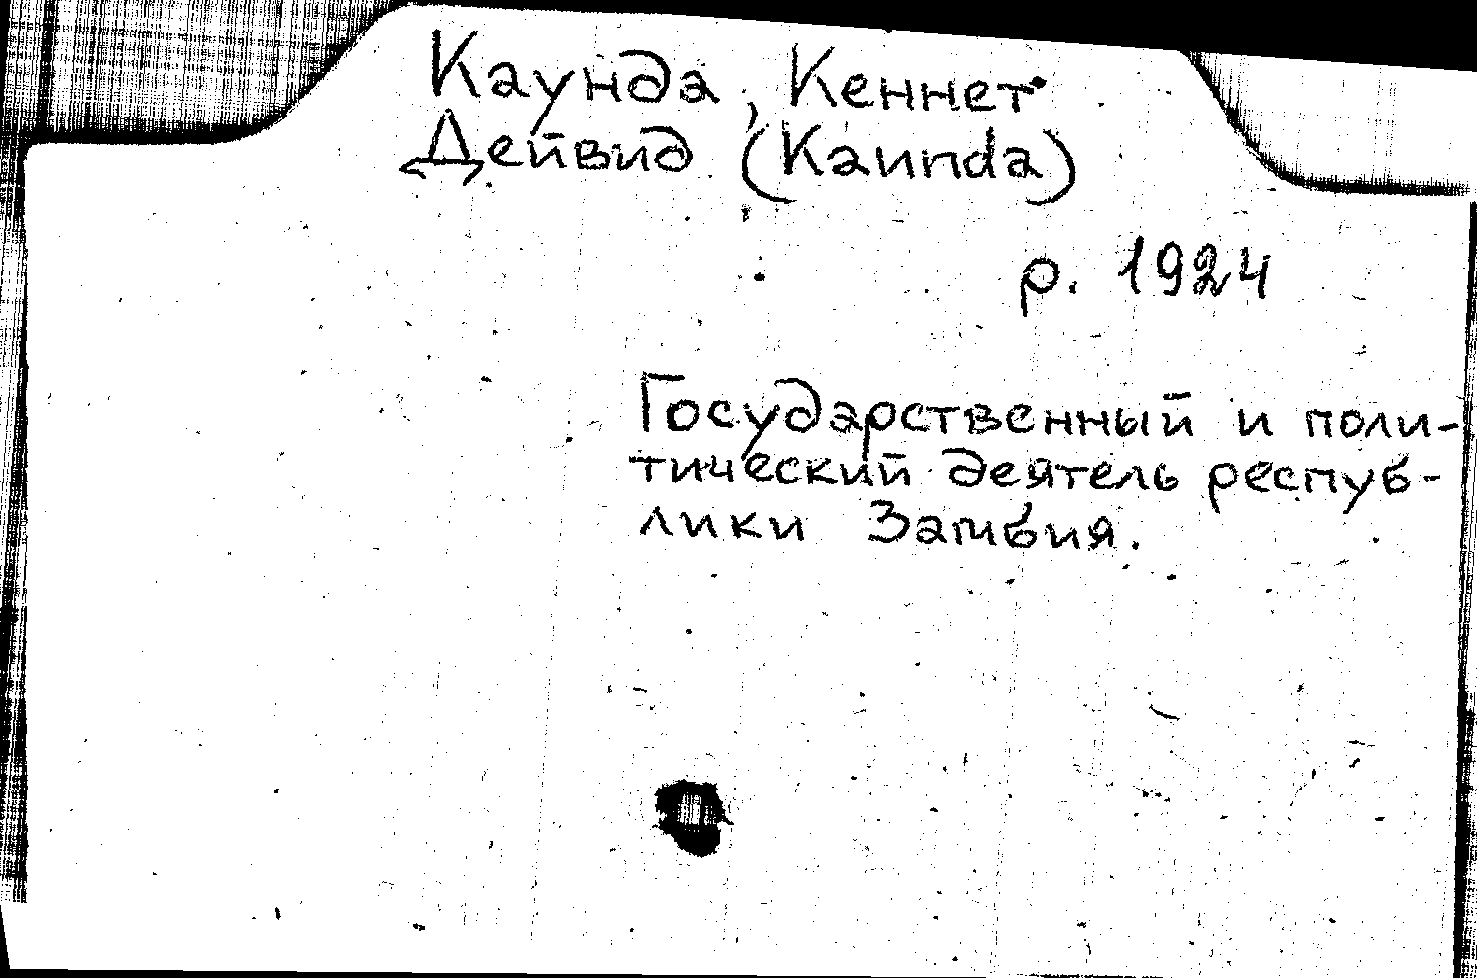 Каунда, Кеннет
Дейвид (Kaunda)
р. 1924
Государственный и поли-
тический деятель респуб-
лики Замбия.